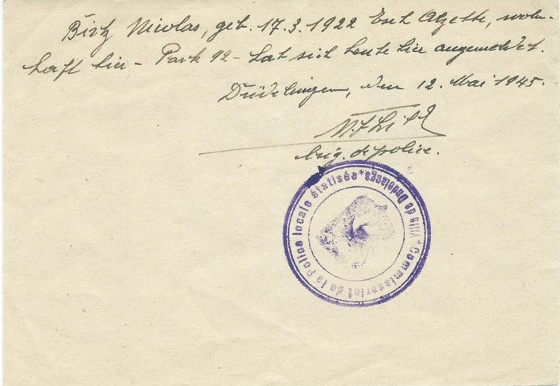 Birtz Nicolas, geb. 17.3.1922 Esch Alzette, wohn-
haft hier - Park 92 - hat sich heute hier angemeldet.
Düdelingen, den 12. Mai 1945.
brig. de police.
Ville de Dudelange * Commissariat de la Police locale étatisée *